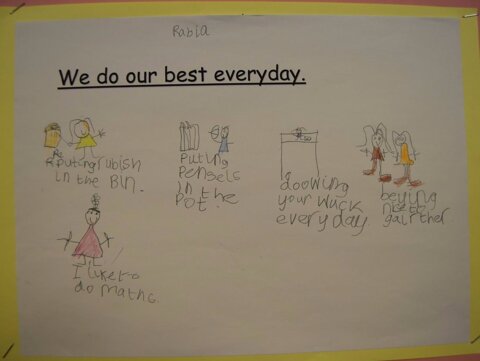 Rabia
We do our best everyday.
Puting rubish
in the Bin.
Puting
Pensels
in the
Pot.
doowing
your wuck
every day
beying
nice to
gairther.
I like to
do maths